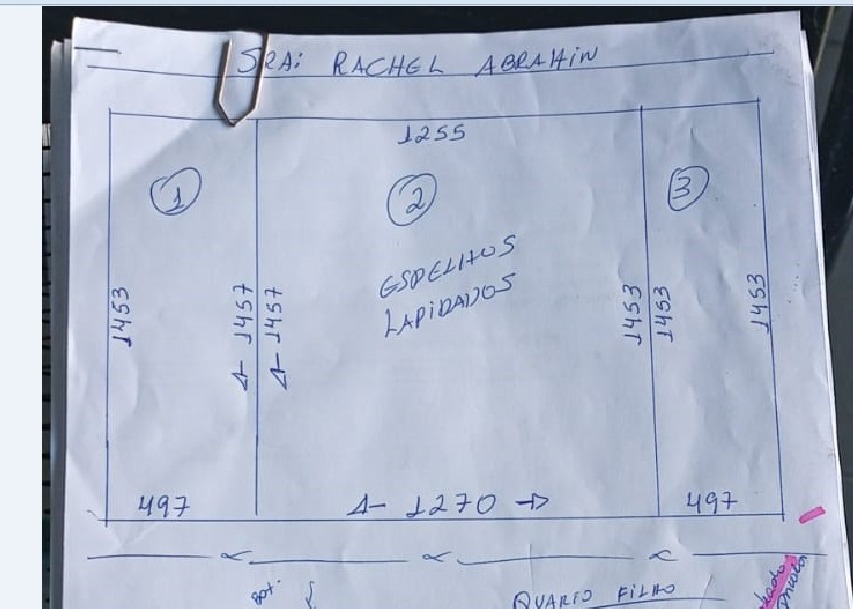 SRA: RACHEL ABRAHIN
1255
1
2
3
ESPELHOS
LAPIDADOS
1453
1457
1457
1453
1453
1453
497
1270
497
QUARTO FILHO